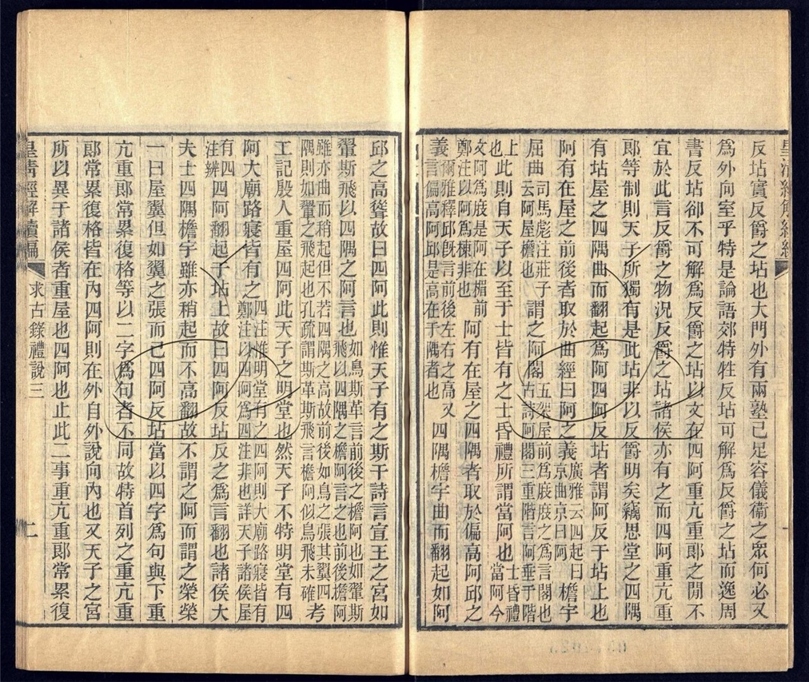 反坫實反爵之坫也大門外有兩塾已足容儀衞之眾何必又
為外向室乎特是論語郊特牲反坫可解為反爵之坫而逸周
書反坫卻不可解為反爵之坫以文在四阿重亢重郎之閒不
宜於此言反爵之物況反爵之坫諸侯亦有之而四阿重亢重
郎等制則天子所獨有是此坫非以反爵明矣竊思堂之四隅
有坫屋之四隅曲而翻起為阿四阿反坫者謂阿反于坫上也
阿有在屋之前後者取於曲經曰阿之義廣雅云四起曰京曲京曰阿檐宇
屈曲司馬彪注莊子云阿屋檐也謂之阿閣古詩阿閣三重階言阿垂于階五架屋前為庪庪之為言閣也
上此則自天子以至于士皆有之士昏禮所謂當阿也士昏禮當阿今
文阿為庪是阿在楣前鄭注以阿為棟非也阿有在屋之四隅者取於偏高阿邱之
義爾雅釋邱旣言前後左右之高又言偏高阿邱是高在于隅者也四隅檐宇曲而翻起如阿
邱之高聳故曰四阿此則惟天子有之斯干詩言宣王之宮如
翬斯飛以四隅之阿言也如鳥斯革言前後之檐阿也如翬斯飛以四隅之檐阿言之也前後檐阿
雖亦曲而稍起但不若四隅之高故前後如鳥之張其翼四隅則如翬之飛起也孔疏謂斯革斯飛言檐阿似鳥飛未確考
工記殷人重屋四阿此天子之明堂也然天子不特明堂有四
阿大廟路寢皆有之四注惟明堂有之四阿則大廟路寢皆有鄭注以四阿為四注非也詳天子諸侯屋
有四注辨四阿翻起于坫上故曰四阿反坫反之為言翻也諸侯大
夫士四隅檐宇雖亦稍起而不高翻故不謂之阿而謂之榮榮
一曰屋翼但如翼之張而已四阿反坫當以四字為句與下重
亢重郎常累復格等以二字為句者不同故特首列之重亢重
郎常累復格皆在內四阿則在外自外說向內也又天子之宮
所以異于諸侯者重屋也四阿也止此二事重亢重郎常累復
皇清經解續編
求古錄禮說三